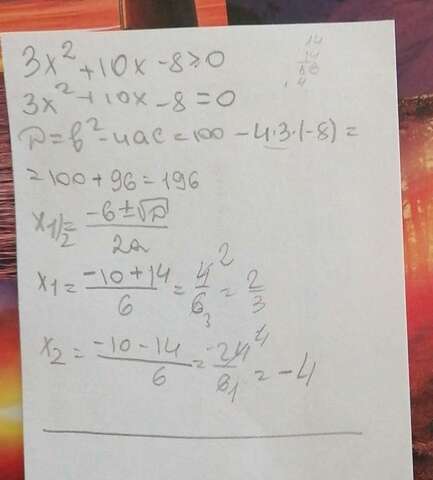 3x² + 10x - 8 ≥ 0
3x² + 10x - 8 = 0
D = b² - 4ac = 100 - 4·3·(-8) =
= 100 + 96 = 196
x1/2 = (-b ± √D) / 2a
x₁ = (-10 + 14) / 6 = 4 2 / 6 3 = 2/3
x₂ = (-10 - 14) / 6 = -24 4 / 6 1 = -4
14
14